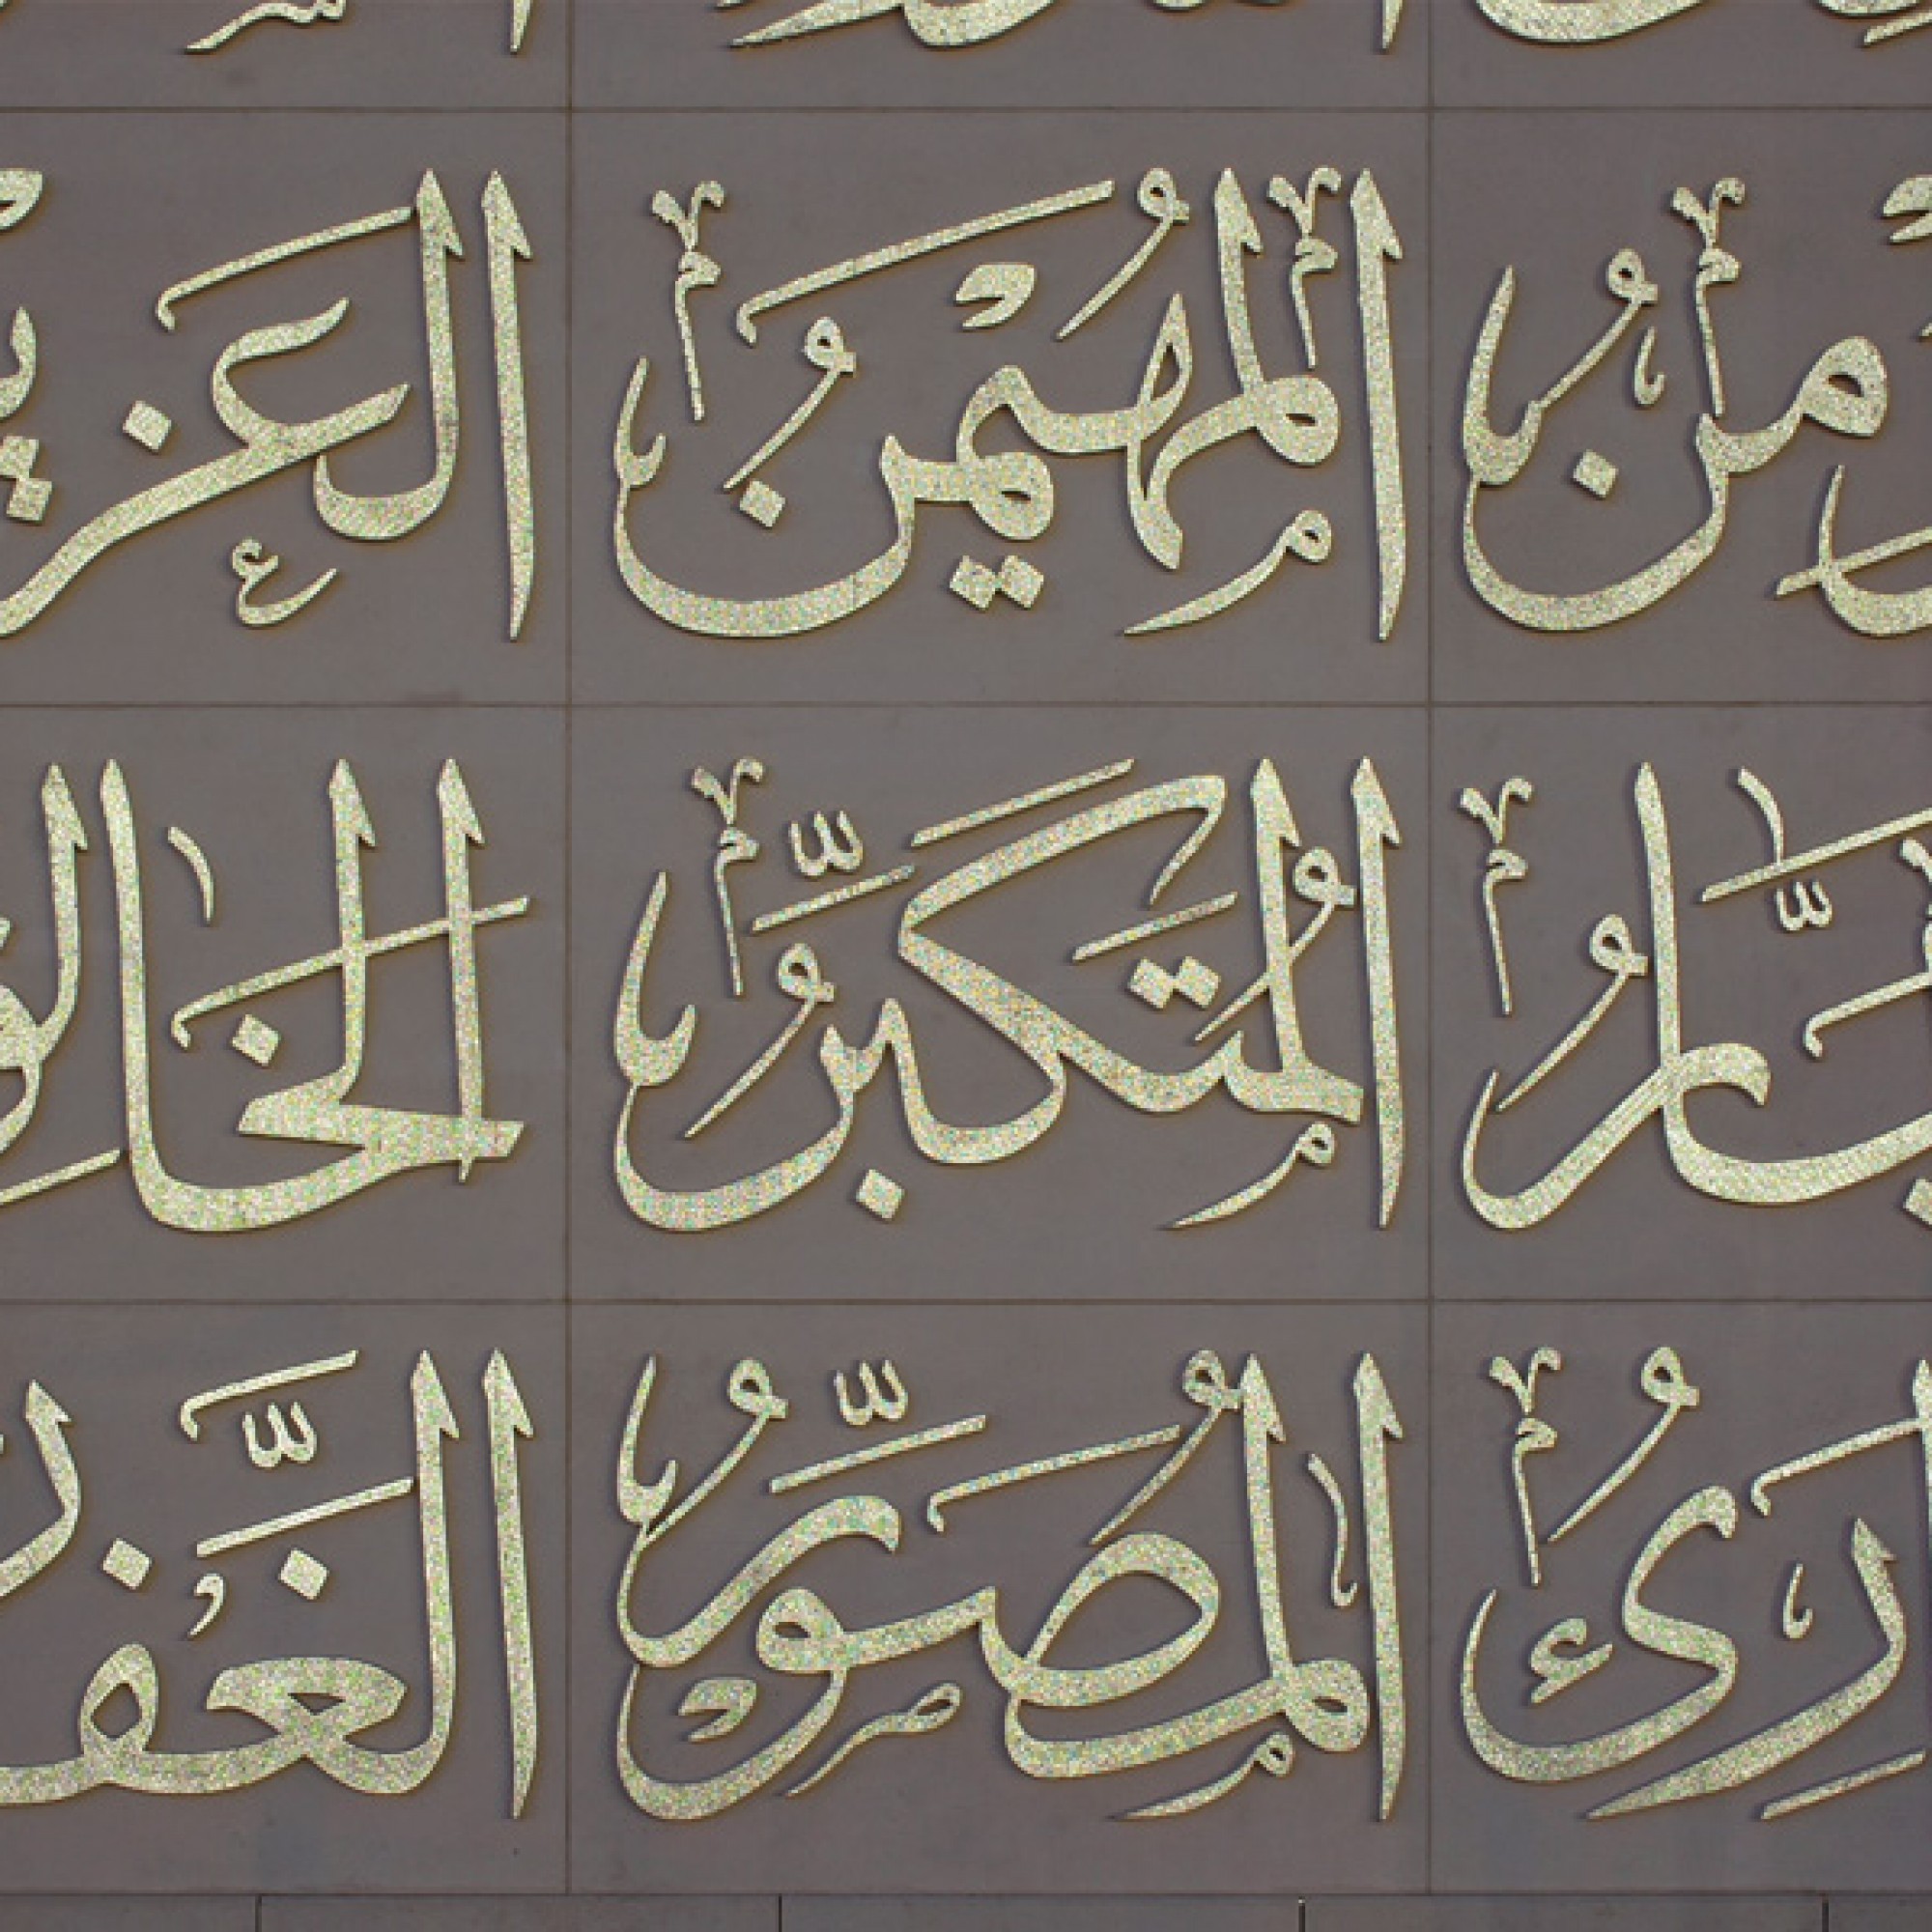 مِنُ الْمُهَيْمِنُ الْعَزِيـ
ـبَّارُ الْمُتَكَبِّرُ الْخَالِق
ارِئُ الْمُصَوِّرُ الْغَفَّا